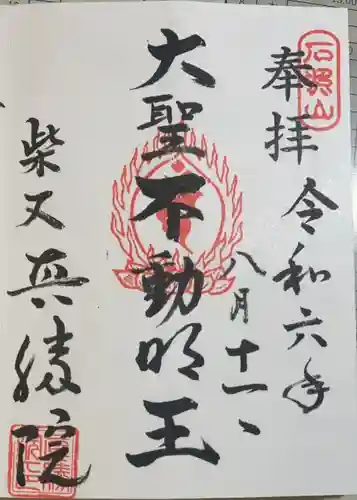 奉拝
石照山
令和六年
八月十一日
大聖不動明王
柴又真勝院